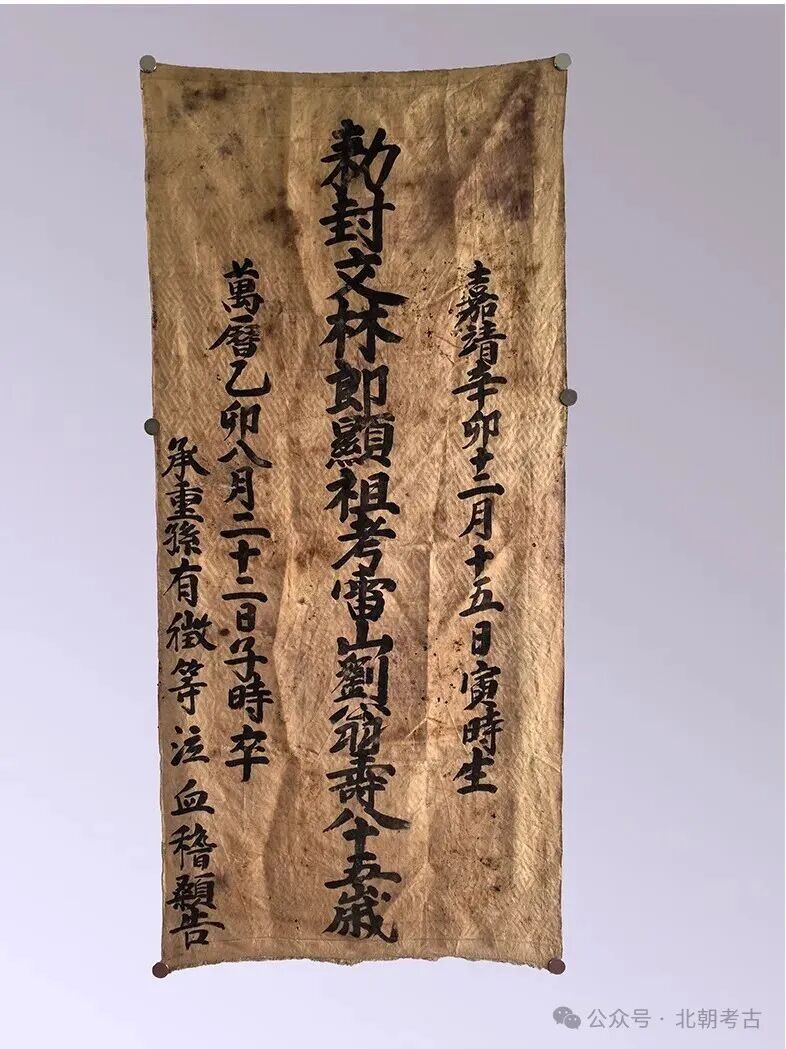 嘉靖辛卯十二月十五日寅時生
勑封文林郎顯祖考雷山劉翁壽八十五歲
萬曆乙卯八月二十二日子時卒
承重孫有徵等泣血稽顙告
公众号·北朝考古